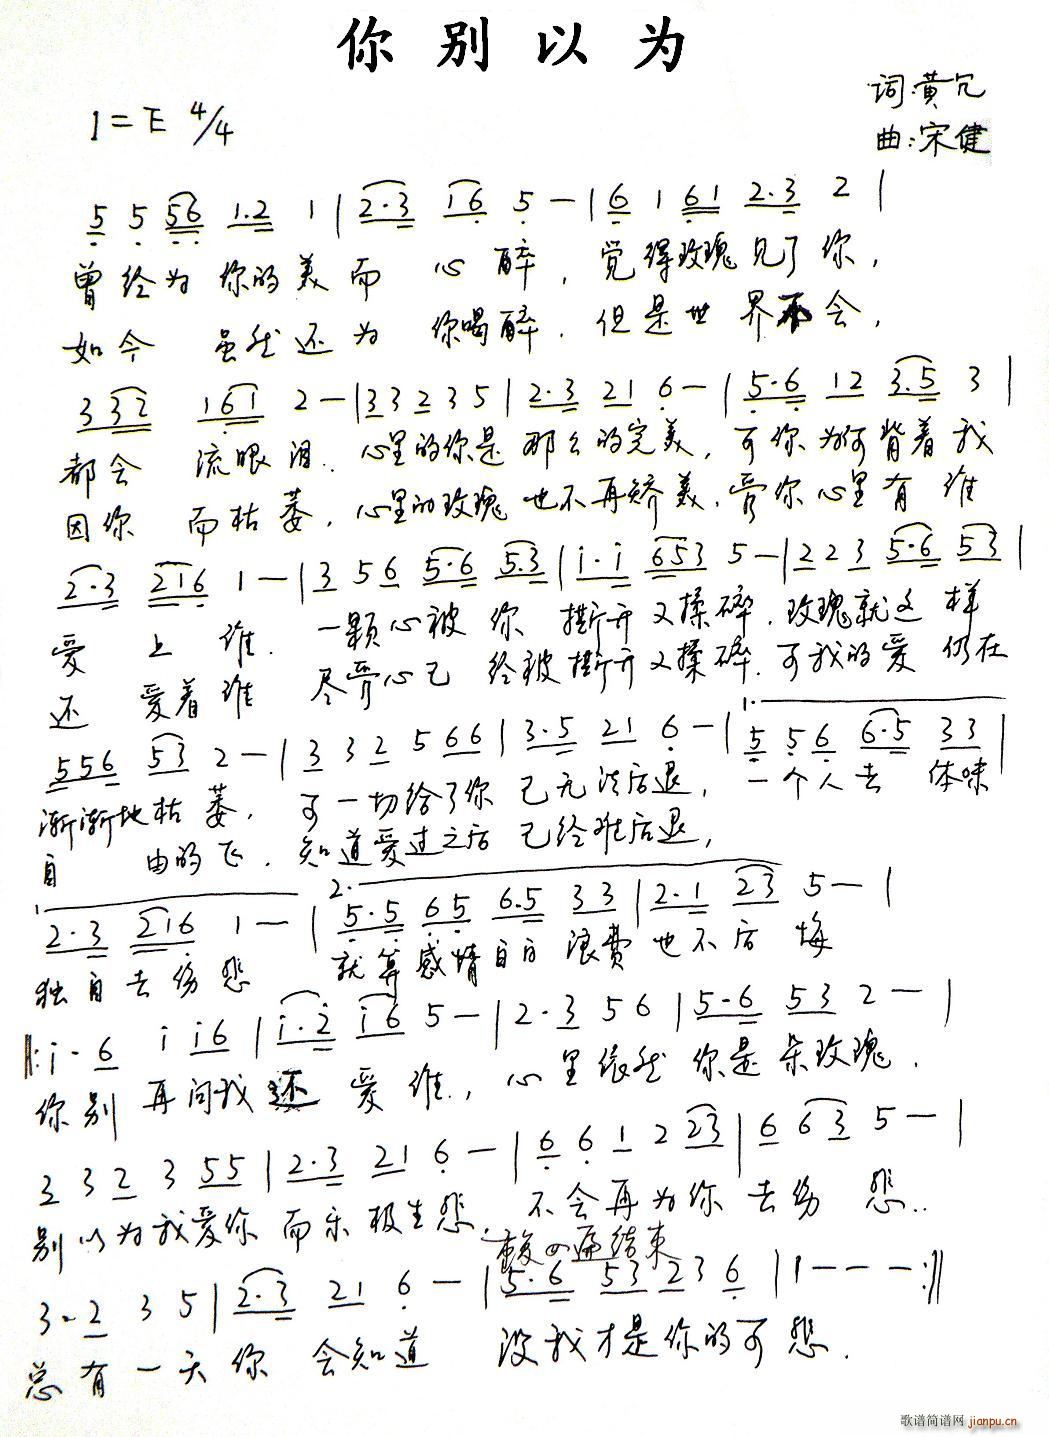 你别以为
词:黄冗
1=E 4/4
曲:宋健
5 5 56 1.2 1 | 2.3 16 5 — | 6 1 61 2.3 2 |
曾经为你的美而 心醉，觉得玫瑰见了你，
如今 虽然还为 你喝醉，但是世界不会，
3 32 161 2 — | 3 3 2 3 5 | 2.3 21 6 — | 5.6 12 3.5 3 |
都会 流眼泪．心里的你是 那么的完美，可你为何背着我
因你 而枯萎，心里的玫瑰也不再娇美，管你心里有谁
2.3 216 1 — | 3 5 6 5.6 5.3 | i.i 653 5 — | 2 2 3 5.6 53 |
爱 上 谁．一颗心被你 撕开又揉碎．玫瑰就这样
还 爱着谁 尽管心已 给被撕开又揉碎．可我的爱仍在
556 53 2 — | 3 3 2 5 66 | 3.5 21 6 — | 1. 5 5 6 6.5 33 |
渐渐地枯萎，可一切给了你 已无法后退，一个人去 体味
自 由的飞．知道爱过之后 已经难后退，
1 2.3 216 1 — | 2. 5.5 65 6.5 33 | 2.1 23 5 — |
独自去伤悲 就算感情白白 浪费也不后 悔
‖: i. 6 i i6 | i.2 i6 5 — | 2.3 5 6 | 5.6 53 2 — |
你别 再问我还 爱谁．，心里依然 你是朵玫瑰．
3 3 2 3 55 | 2.3 21 6 — | 6 6 1 2 23 | 6 6 3 5 — |
别以为我爱你 而乐极生悲．不会再为你 去伤 悲．．
四遍结束
3. 2 3 5 | 2.3 21 6 — | 5.6 53 2 3 6 | 1 — — — :‖
总有一天你 会知道 没我才是你的可悲．
歌谱简谱网 jianpu.cn